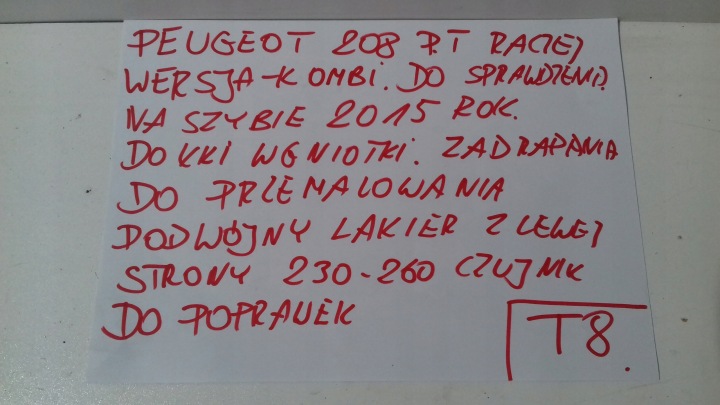 PEUGEOT 208 PT RACIEJ
WERSJA-KOMBI. DO SPRAWDZENIA
NA SZYBIE 2015 ROK.
DO KKI WGNIOTKI. ZADRAPANIA
DO PRZEMALOWANIA
PODWÓJNY LAKIER Z LEWEJ
STRONY 230-260 CZUJNIK
DO POPRAWEK
T8.